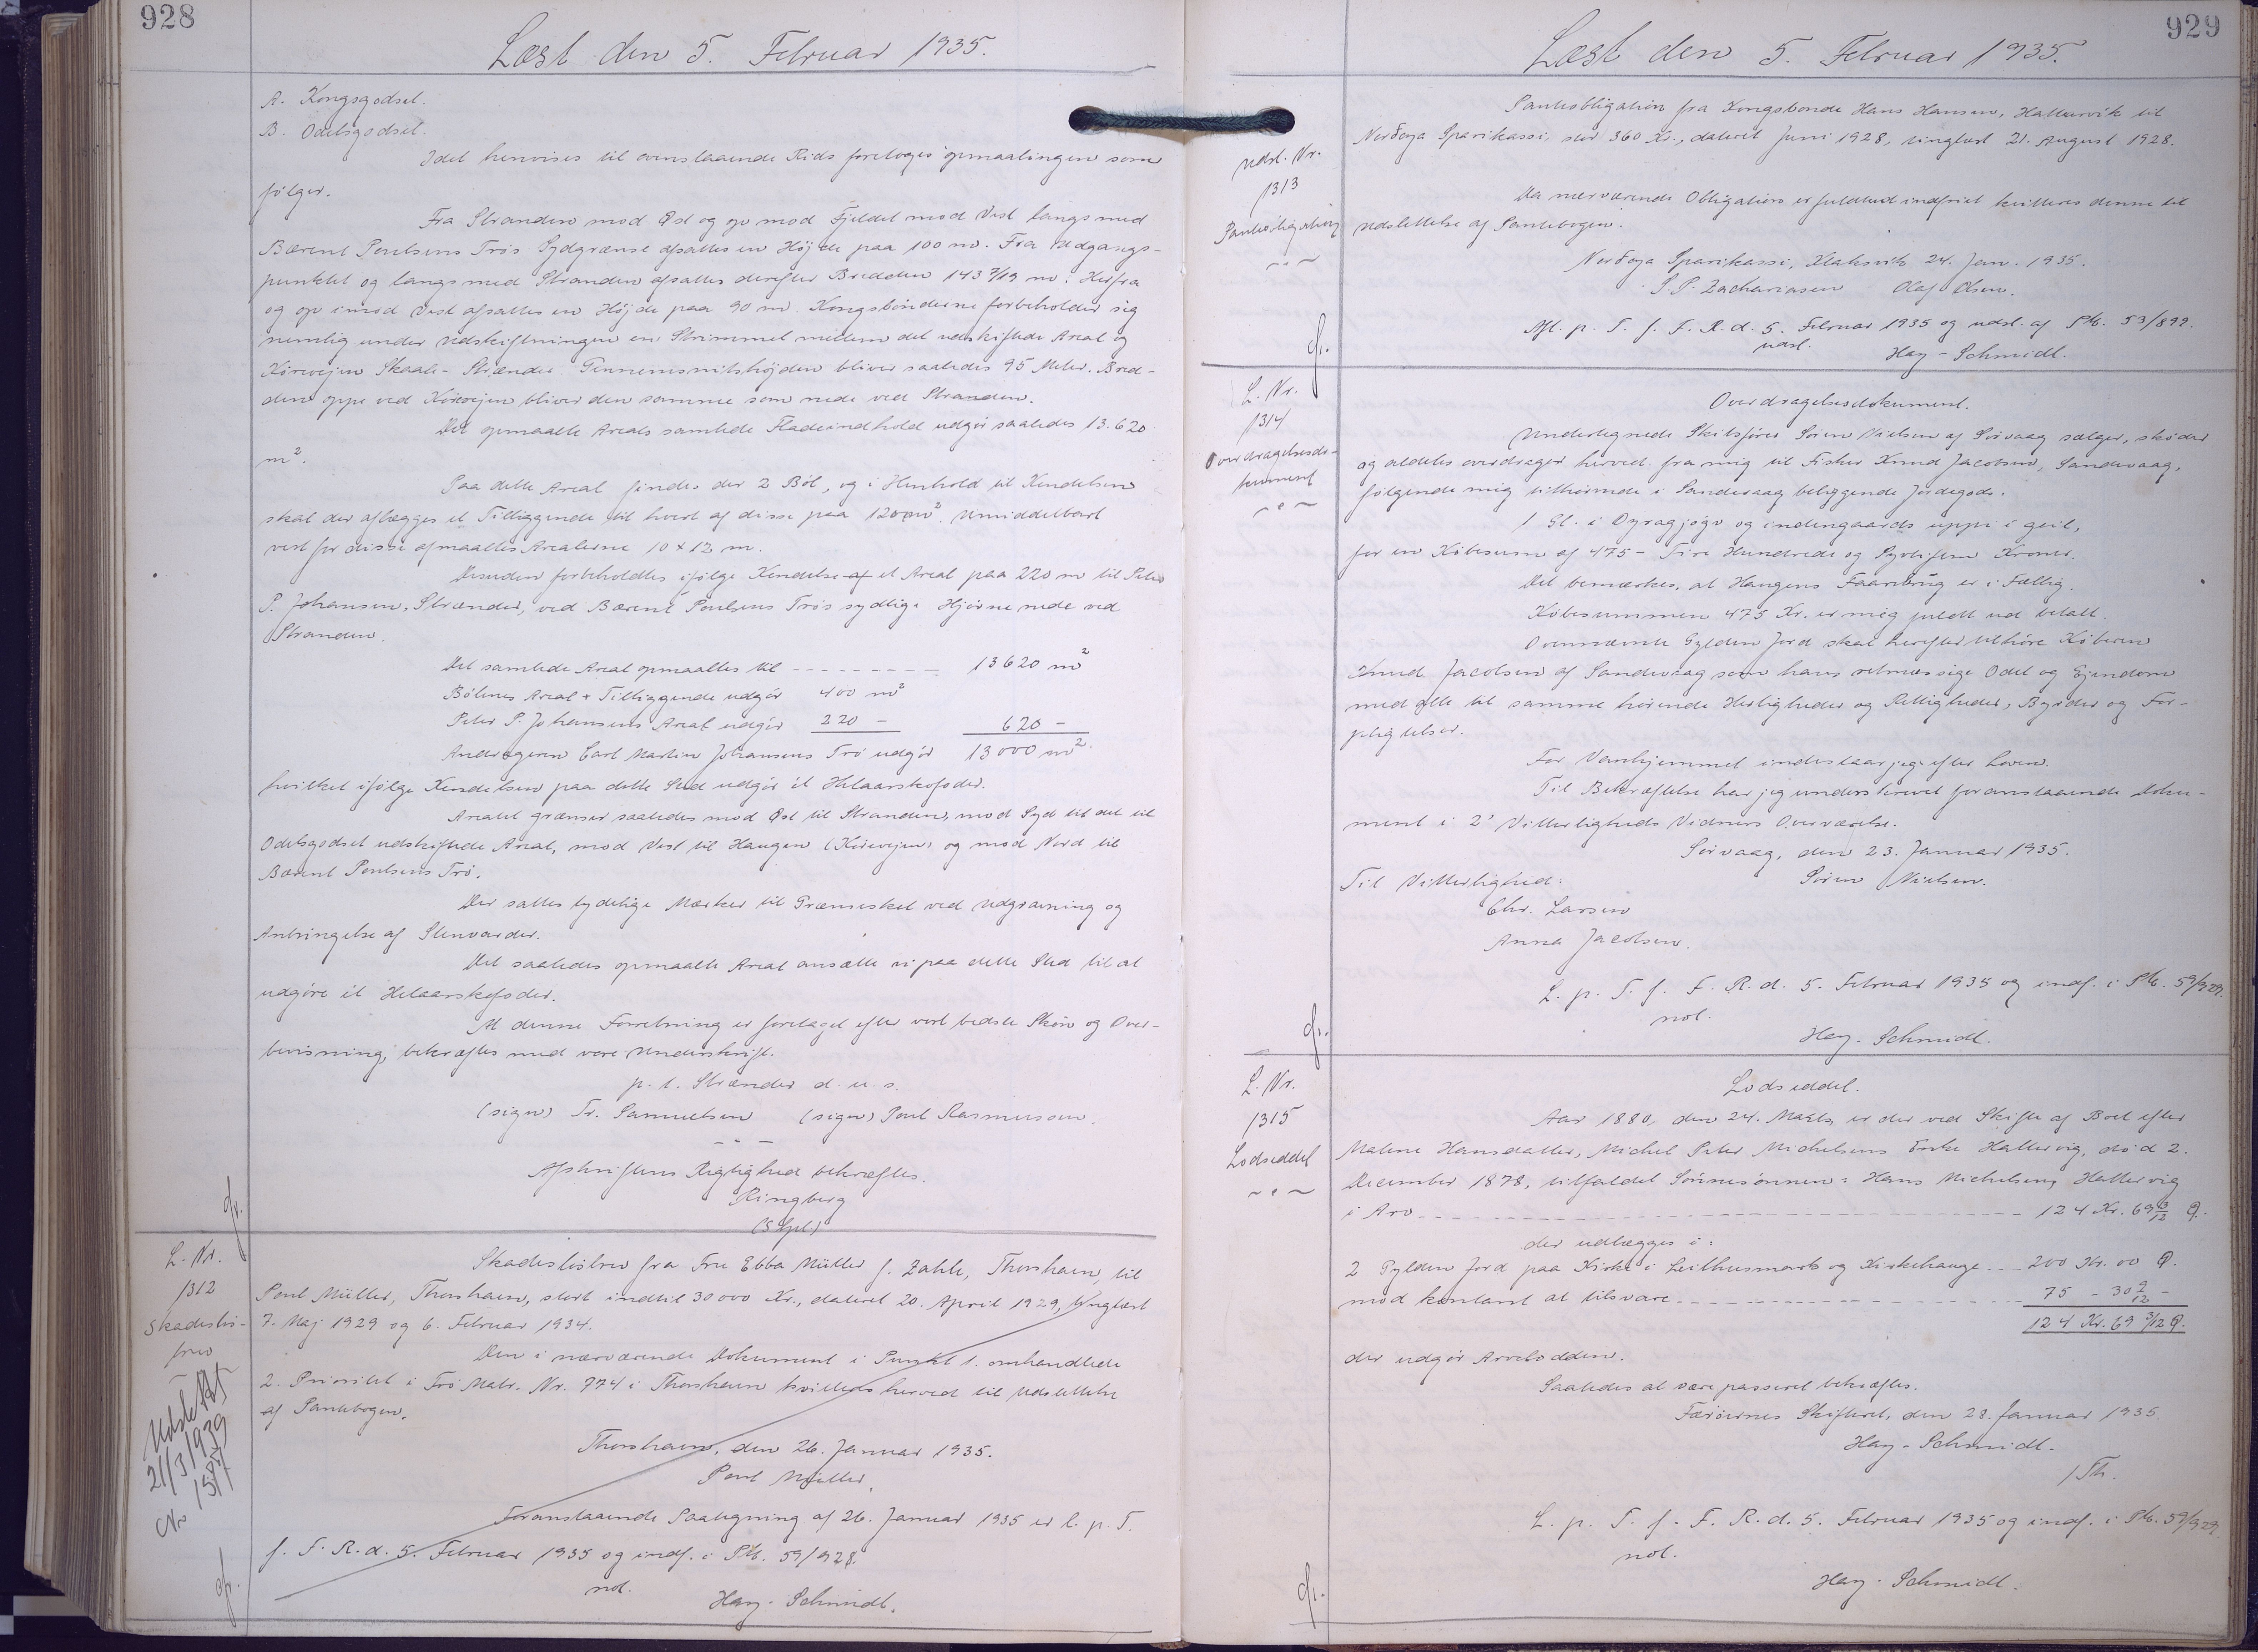 928
Læst den 5. Februar 1935.
A. Kongsgodset.
B. Odelsgodset.
Idet henvises til ovenstaaende Rids foretoges opmaalingen som
følger.
Fra Stranden mod Øst og op mod Fjeldet mod Vest langs med
Bærent Poulsens Trøs Sydgrænse afsattes en Højde paa 100 m. Fra Udgangs-
punktet og langs med Stranden afsattes derefter Bredden 143 7/19 m. Herfra
og op imod Vest afsattes en Højde paa 90 m. Kongsbønderne forbeholder sig
nemlig under Udskiftningen en Strimmel mellem det udskiftede Areal og
Køreveien Skaale - Strænder. Gennemsnitshøjden bliver saaledes 95 Meter. Bred-
den oppe ved Køreveien bliver den samme som nede ved Stranden.
Det opmaalte Areals samlede Fladeindhold udgør saaledes 13.620
m².
Paa dette Areal findes der 2 Böl, og i Henhold til Kendelsen
skal der aflægges et Tilliggende til hvert af disse paa 120 m². Umiddelbart
vest for disse afmaaltes Arealerne 10 x 12 m.
Desuden forbeholdtes ifølge Kendelse af et Areal paa 220 m til Peter
P. Johansen, Strænder, ved Bærent Poulsens Trøs sydlige Hjørne nede ved
Stranden.
Det samlede Areal opmaaltes til - - - - - - - - - 13620 m²
Bölenes Areal + Tilliggende udgör 400 m²
Peter P. Johansens Areal udgör 220 - 620 -
Andrageren Carl Martin Johansens Trö udgör 13000 m²
hvilket ifölge Kendelsen paa dette Sted udgör ét Helaarskofoder.
Arealet grænser saaledes mod Øst til Stranden, mod Syd til det til
Odelsgodset udskiftede Areal, mod Vest til Haugen (Køreveien) og mod Nord til
Bærent Poulsens Trö.
Der sattes tydelige Mærker til Grænseskel ved Udgravning og
Anbringelse af Stenvarder.
Det saaledes opmaalte Areal ansætte vi paa dette Sted til at
udgöre ét Helaarskofoder.
At denne Forretning er foretaget efter vort bedste Skön og Over-
bevisning, bekræftes med vore Underskrift.
p.t. Strænder d. u. s.
(sign) Tr. Samuelsen (sign) Poul Rasmussen.
Afskriftens Rigtighed bekræftes.
Ringberg
L. Nr.
1312
Skadeslös-
brev
Udslettet
21/3 1939
Skadeslösbrev fra Fru Ebba Müller f. Zahle, Thorshavn, til
Poul Müller, Thorshavn, stort indtil 30000 Kr., dateret 20. April 1929, tinglæst
7. Maj 1929 og 6. Februar 1934.
Den i nærværende Dokument i Punkt 1. omhandlede
2. Prioritet i Trö Matr. Nr. 774 i Thorshavn kvitteres herved til Udslettelse
af Pantebogen.
Thorshavn, den 26. Januar 1935.
Poul Müller.
Foranstaaende Paategning af 26. Januar 1935 er l. p. T.
f. F. R. d. 5. Februar 1935 og indf. i Ptb. 59/928.
not.
Hay - Schmidt.
929
Læst den 5. Februar 1935.
Udsl. Nr.
1313
Panteobligation
Panteobligation fra Kongsbonde Hans Hansen, Hattarvik til
Norðoya Sparikassi, stor 360 Kr., dateret Juni 1928, tinglæst 21. August 1928.
Da nærværende Obligation er fuldtud indfriet kvitteres denne til
Udslettelse af Pantebogen.
Norðoya Sparikassi, Klaksvik 24. Jan. 1935.
S. P. Zachariasen Olaf Olsen.
Afl. p. T. f. F. R. d. 5. Februar 1935 og udsl. af Ptb. 53/899.
udsl.
Hay - Schmidt.
L. Nr.
1314
Overdragelsesdo-
kument
Overdragelsesdokument.
Undertegnede Skibsfører Sören Nielsen af Sörvaag sælger, sköder
og aldeles overdrager herved fra mig til Fisker Knud Jacobsen, Sandevaag,
følgende mig tilhørende i Sandevaag beliggende Jordegods:
1 Gl. i Dyragjógv og indengaards uppi i geil,
for en Købesum af 475 - Fire Hundrede og Syvtifem Kroner.
Det bemærkes, at Haugens Faaribrúg er i Fællig.
Købesummen 475 Kr. er mig fuldt ud betalt.
Ovennævnte Gylden Jord skal herefter tilhöre Köberen
Knud Jacobsen af Sandevaag som hans retmæssige Odel og Ejendom
med alle til samme hörende Herligheder og Rettigheder, Byrder og For-
pligtelser.
For Vanhjemmel indestaar jeg efter Loven.
Til Bekræftelse har jeg underskrevet foranstaaende Doku-
ment i 2' Vitterligheds Vidners Overværelse.
Sörvaag, den 23. Januar 1935.
Til Vitterlighed: Sören Nielsen.
Chr. Larsen
Anna Jacobsen.
L. p. T. f. F. R. d. 5. Februar 1935 og indf. i Ptb. 59/929.
not.
Hay - Schmidt.
L. Nr.
1315
Lodseddel
Lodseddel.
Aar 1880, den 24. Marts, er der ved Skifte af Boet efter
Malene Hansdatter, Michel Peter Michelsens Enke Hattervig, död 2.
December 1878, tilfaldet Sönnesönnen: Hans Michelsen, Hattervig
i Arv - - - - - - - - - - - - - - 124 Kr. 69 3/12 Ø.
der udlægges i:
2 Gylden Jord paa Kirke i Leithusmark og Kirkehauge - - 200 Kr. 00 Ø.
mod kontant at tilsvare - - - - - - - - - - - - 75 - 30 9/12 -
124 Kr. 69 3/12 Ø.
der udgör Arvelodden.
Saaledes at være passeret bekræftes.
Færöernes Skifteret, den 28. Januar 1935
Hay - Schmidt.
/Th.
L. p. T. f. F. R. d. 5. Februar 1935 og indf. i Ptb. 59/929.
not.
Hay - Schmidt.